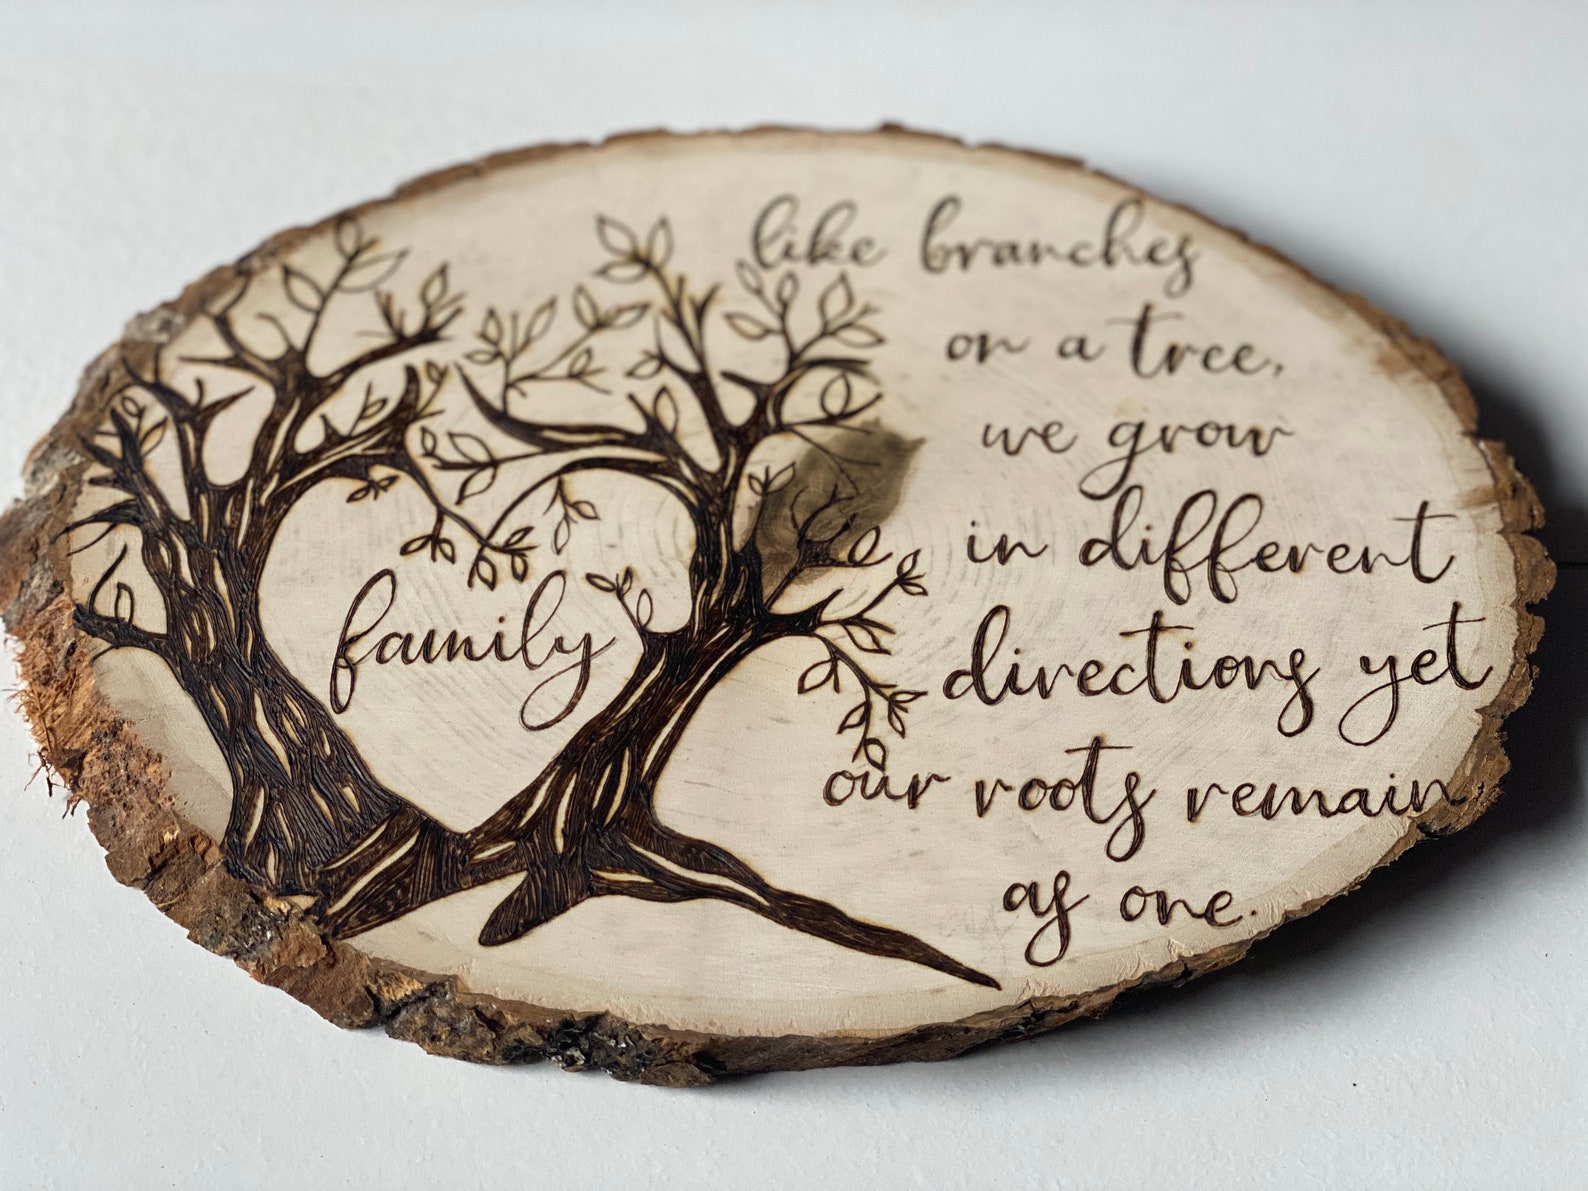 family
like branches
on a tree,
we grow
in different
directions yet
our roots remain
as one.